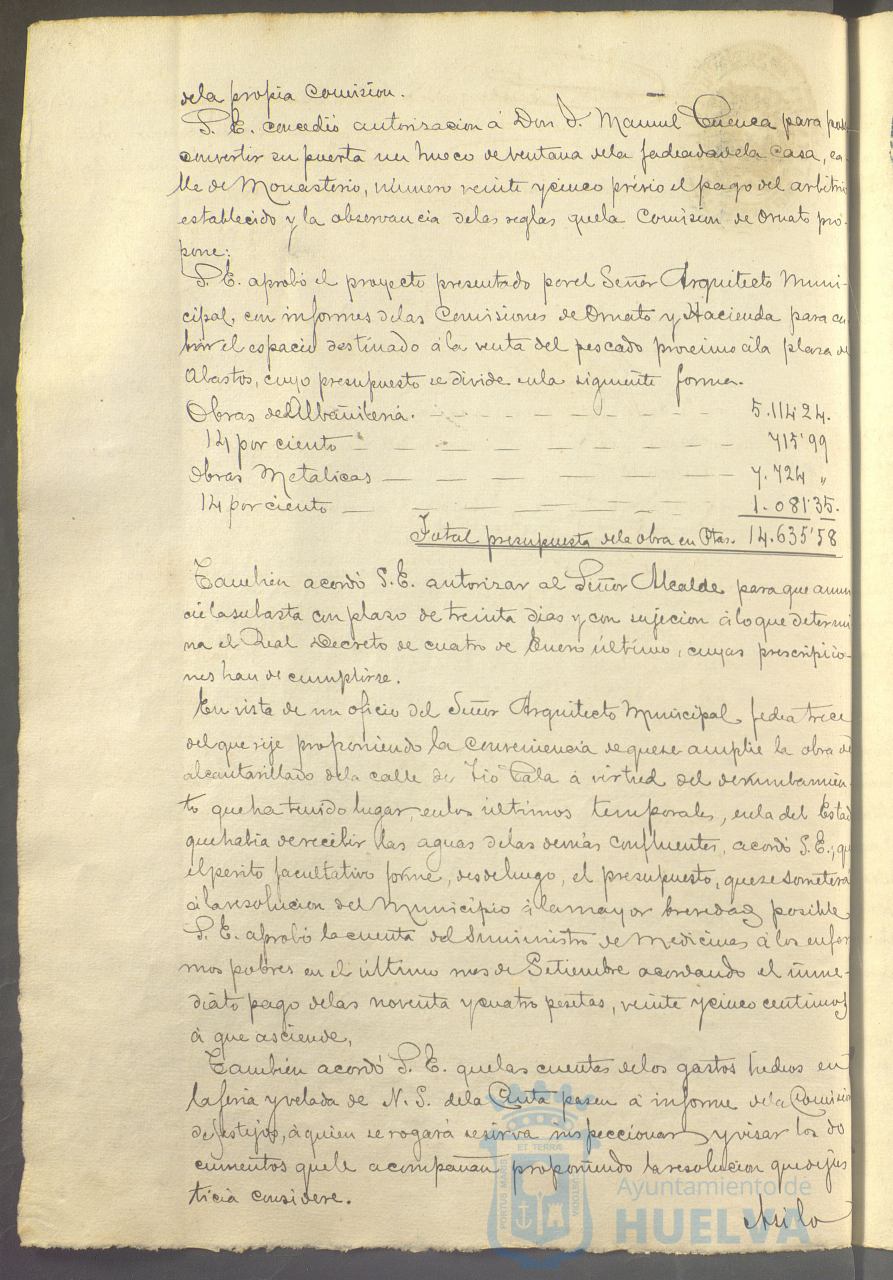 dela propia Comision.
S. E. concedió autorizacion á Don J. Manuel Cuenca para pod
convertir en puerta un hueco de ventana dela fachada dela Casa, ca-
lle de Monasterio, número veinte y cinco prévio el pago del arbitri
establecido y la observancia delas reglas que la Comision de Ornato pro-
pone:
S. E. aprobó el proyecto presentado por el Señor Arquitecto Muni-
cipal, con informes delas Comisiones de Ornato y Hacienda para cu-
brir el espacio destinado á la venta del pescado procsimo á la plaza de
Abastos, cuyo presupuesto se divide en la siguiente forma.
Obras de Albañileria. 5.114 24.
14 por ciento 715'99
Obras Metalicas 7.724 "
14 por ciento 1.081'35.
Total presupuesto dela obra en Ptas. 14.635'58
Tambien acordó S. E. autorizar al Señor Alcalde para que anun
cie la subasta con plazo de treinta dias y con sujecion á lo que determi
na el Real Decreto de cuatro de Enero último, cuyas prescripcio-
nes han de cumplirse.
En vista de un oficio del Señor Arquitecto Municipal, fecha trece
del que rije proponiendo la conveniencia de que se amplie la obra de
alcantarillado dela calle de Tió Cala á virtud del derrumbamien-
to que ha tenido lugar, en los últimos temporales, en la del Estad
que habia de recibir las aguas delas demás confluentes, acordó S. E., qu
el perito facultativo forme, desde luego, el presupuesto, que se someterá
á la resolucion del Municipio á la mayor brevedad posible
S. E. aprobó la cuenta del Suministro de Medicinas á los enfer
mos pobres en el último mes de Setiembre acordando el inme-
diato pago delas noventa y cuatro pesetas, veinte y cinco centimos
á que asciende,
Tambien acordó S. E. que las cuentas delos gastos hechos en
la feria y velada de N. S. dela Cinta pasen á informe dela Comisio
de festejos, á quien se rogará se sirva inspeccionar y visar los do
cumentos que le acompañan proponiendo la resolucion que de jus
ticia considere.
Asilo
PORTUS MARIS ET TERRAE CUSTODIA
Ayuntamiento de
HUELVA